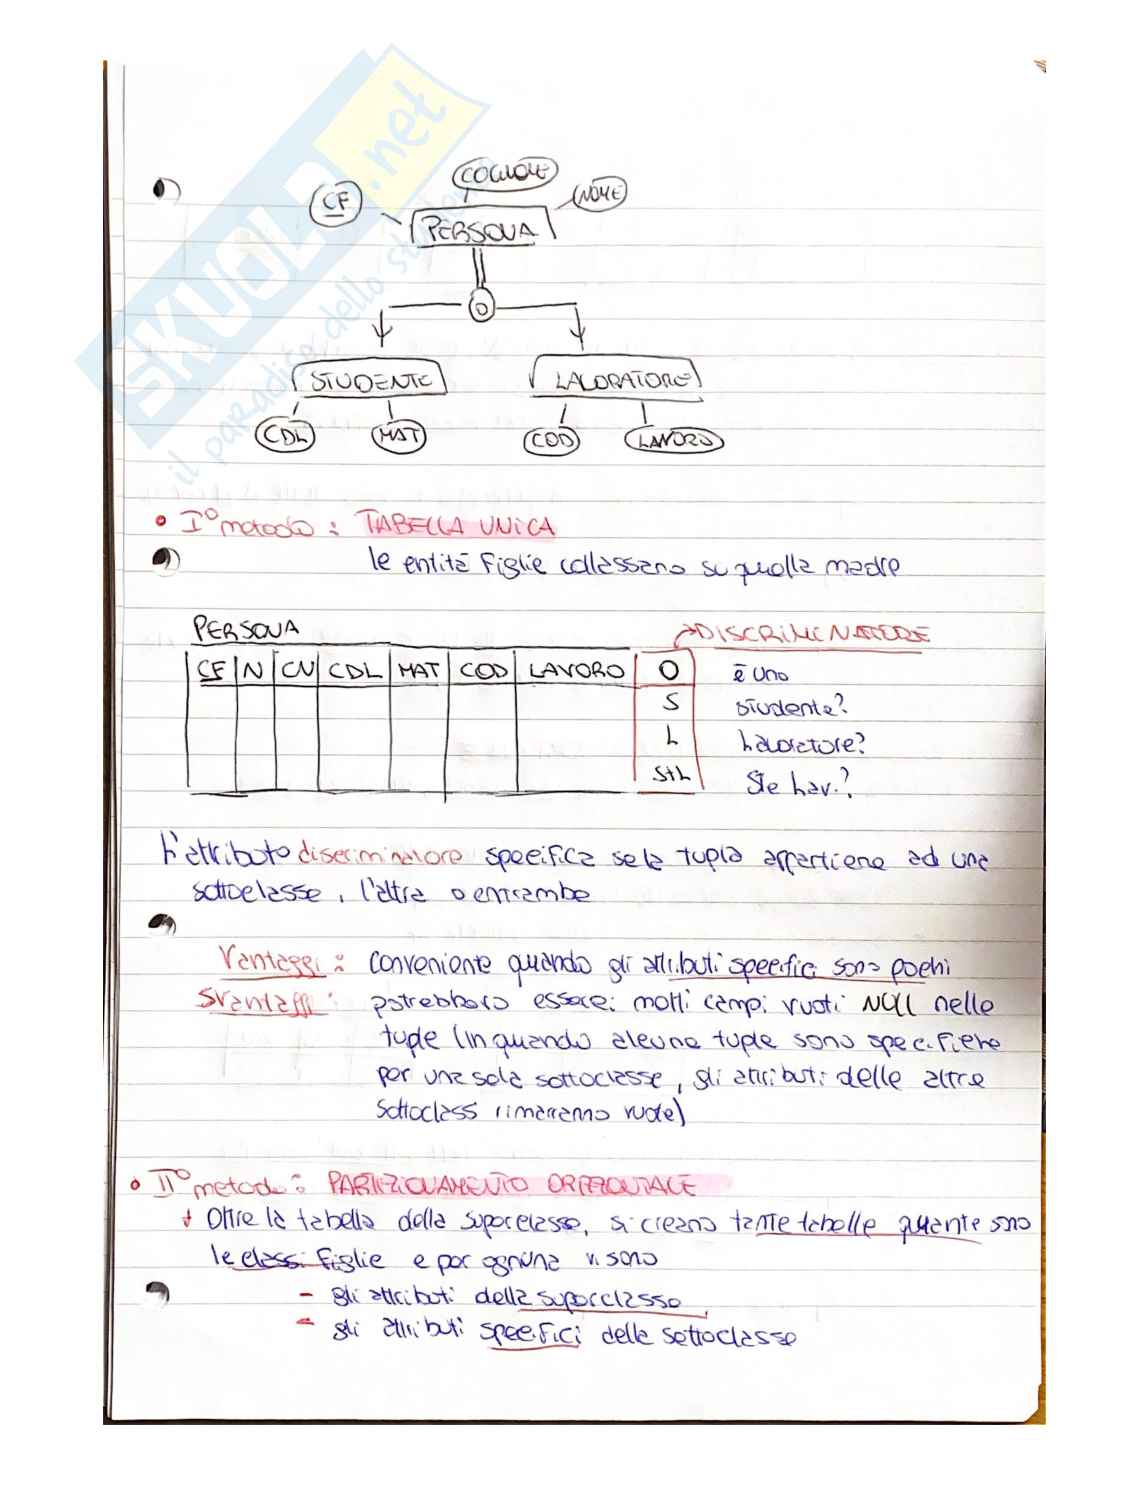 SKUOLA.net
il paradiso dello studente
COGNOME
CF
NOME
PERSONA
O
STUDENTE
LAVORATORE
CDL
MAT
COD
LAVORO
• I° metodo : TABELLA UNICA
le entità figlie collassano su quella madre
PERSONA
→DISCRIMINATORE
CF N CN CDL MAT COD LAVORO O è uno
S studente?
L Lavoratore?
S+L S e Lav.?
L'attributo discriminatore specifica se la tupla appartiene ad una
sottoclasse, l'altra o entrambe
Vantaggi : conveniente quando gli attributi specifici sono pochi
Svantaggi : potrebbero esserci molti campi vuoti NULL nelle
tuple (in quando alcune tuple sono specifiche
per una sola sottoclasse, gli attributi delle altre
sottoclassi rimarranno vuote)
• II° metodo : PARTIZIONAMENTO ORIZZONTALE
Oltre la tabella della superclasse, si creano tante tabelle quante sono
le classi figlie e per ognuna vi sono
- gli attributi della superclasse
- gli attributi specifici delle sottoclasse